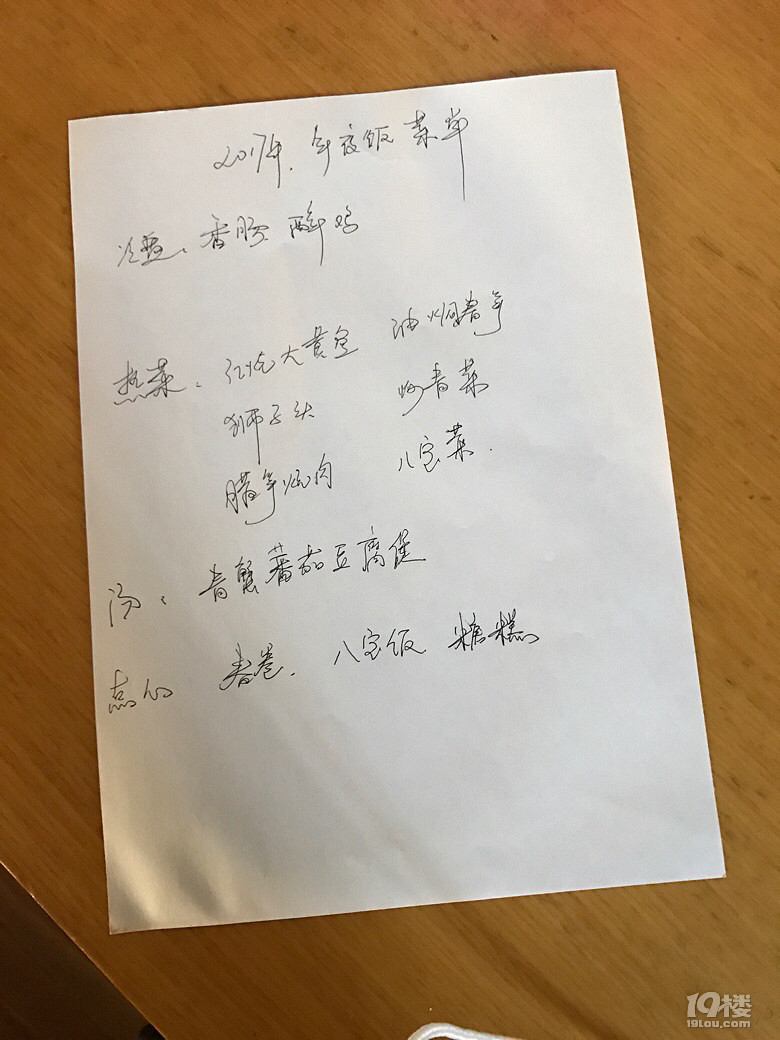 2017年.年夜饭菜单
冷盘：香肠 醉鸡
热菜：红烧大黄鱼 油焖春笋
狮子头 炒青菜
腊笋烧肉 八宝菜.
汤：青蟹蕃茄豆腐煲
点心 春卷.八宝饭 糖糕
19楼
19lou.com